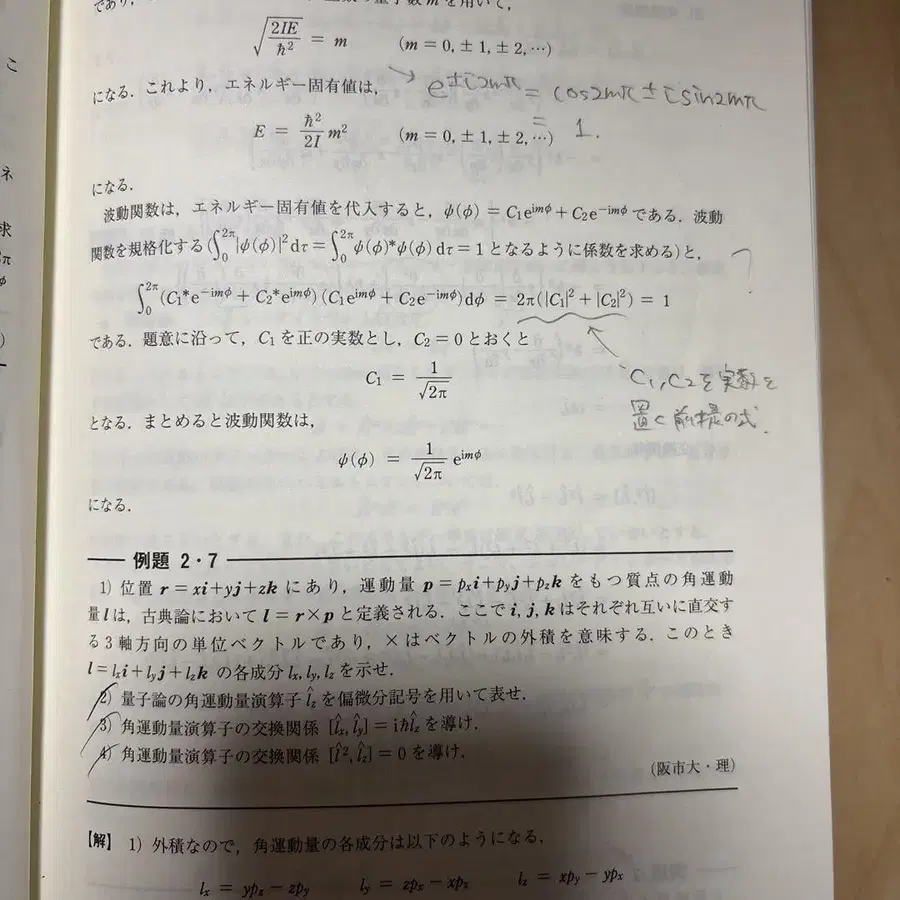 であり，
量子数 m を用いて，
√(2IE/ħ²) = m (m = 0, ± 1, ± 2, …)
になる．これより，エネルギー固有値は，
→ e^{±i2mπ} = cos2mπ ± i sin2mπ
= 1.
E = ħ²/2I m² (m = 0, ± 1, ± 2, …)
になる．
波動関数は，エネルギー固有値を代入すると，ψ(φ) = C₁e^{imφ} + C₂e^{-imφ} である．波動
関数を規格化する (∫₀^{2π}|ψ(φ)|²dτ = ∫₀^{2π}ψ(φ)*ψ(φ)dτ = 1 となるように係数を求める) と，
?
∫₀^{2π}(C₁*e^{-imφ} + C₂*e^{imφ})(C₁e^{imφ} + C₂e^{-imφ})dφ = 2π(|C₁|² + |C₂|²) = 1
である．題意に沿って，C₁ を正の実数とし，C₂ = 0 とおくと
C₁, C₂を実数と
置く前提の式．
C₁ = 1/√2π
となる．まとめると波動関数は，
ψ(φ) = 1/√2π e^{imφ}
になる．
例題 2・7
1) 位置 r = xi+yj+zk にあり，運動量 p = pₓi+p_yj+p_zk をもつ質点の角運動
量 l は，古典論において l = r×p と定義される．ここで i, j, k はそれぞれ互いに直交す
る3軸方向の単位ベクトルであり，× はベクトルの外積を意味する．このとき
l = lₓi+l_yj+l_zk の各成分 lₓ, l_y, l_z を示せ．
2) 量子論の角運動量演算子 l̂_z を偏微分記号を用いて表せ．
3) 角運動量演算子の交換関係 [l̂ₓ, l̂_y] = iħl̂_z を導け．
4) 角運動量演算子の交換関係 [l̂², l̂_z] = 0 を導け．
(阪市大・理)
【解】 1) 外積なので，角運動量の各成分は以下のようになる．
lₓ = yp_z − zp_y l_y = zpₓ − xp_z l_z = xp_y − ypₓ
こ
ネ
求